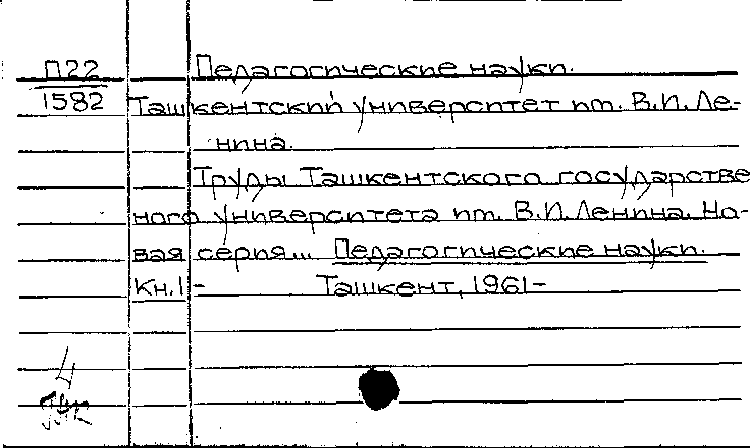 П22
1582
Педагогические науки.
Ташкентский университет им. В.И. Ле-
нина.
Труды Ташкентского государстве
ного университета им. В.И. Ленина. Но-
вая серия... Педагогические науки.
Кн. 1 - Ташкент, 1961-
4